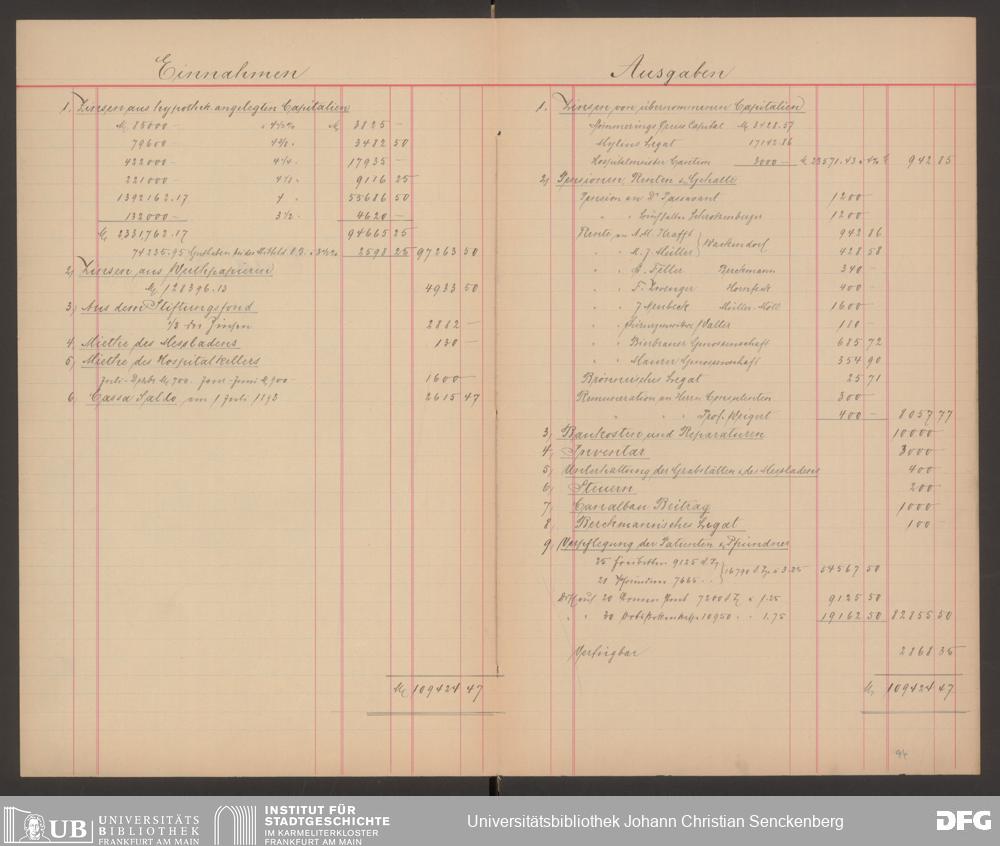 Einnahmen
1. Zinsen aus hypothek. angelegten Capitalien
M. 85000 — a 4½% M. 3825 —
79600 4⅜ " 3482 50
422000 — 4¼ " 17935 —
221000 — 4⅛ " 9116 25
1392162.17 4 " 55686 50
132000 — 3½ " 4620 —
M. 2331762.17 94665 25
74235.95 Guthaben bei der 3½% 2598 25 97263 50
2, Zinsen aus Werthpapieren
M. 128396.13 4933 50
3, Aus dem Stiftungsfond
⅓ der Zinsen 2882 —
4, Miethe des Messladens 130 —
5, Miethe des Hospitalkellers
Juli-Dezbr M. 700. Janr-Juni M. 900 1600 —
6, Cassa Saldo am 1 Juli 1893 2615 47
M. 109424 47
Ausgaben
1. Zinsen von übernommenen Capitalien
Sömmerings Preis Capital M. 3428.57
Mylius Legat 17142.86
Hospitalmeister Caution 3000 — M. 23571.43 a 4% M. 942 85
2, Pensionen, Renten & Gehalte
Pension an Dr Passavant 1200
" " Schrotzenberger 1200
Rente an A.M. Krafft 942 86
" " M. J. Müller Wackendorf 428 58
" " Feller Berckmann 340 —
" " F. Zwenger Hornfeck 400 —
" " J Arnbeck Müller-Möll 1600 —
" " Waller 110 —
" " Bierbrauer Genossenschaft 685 72
" " Maurer Genossenschaft 354 90
Brönnerisches Legat 25 71
Remuneration an Herrn Consulenten 300 —
" " " Prof. Weigert 400 — 8057 77
3, Baukosten und Reparaturen 10000 —
4, Inventar 3000 —
5, Unterhaltung der Grabstätten & des Messladens 400
6, Steuern 200
7, Canalbau Beitrag 1000
8, Berckmannisches Legat 100
9, Verpflegung der Patienten & Pfründner
25 Freibetten 9125 d. Tg 16790 d. Tg. a 3.25 54567 50
21 Pfründner 7665 " "
20 7200 d Tg a 1.25 9125 50
" " 30 10950 " " 1.75 19162 50 82855 50
Verfügbar 2868 35
M. 109424 47
94
UB UNIVERSITÄTS BIBLIOTHEK FRANKFURT AM MAIN
INSTITUT FÜR STADTGESCHICHTE IM KARMELITERKLOSTER FRANKFURT AM MAIN
Universitätsbibliothek Johann Christian Senckenberg
DFG